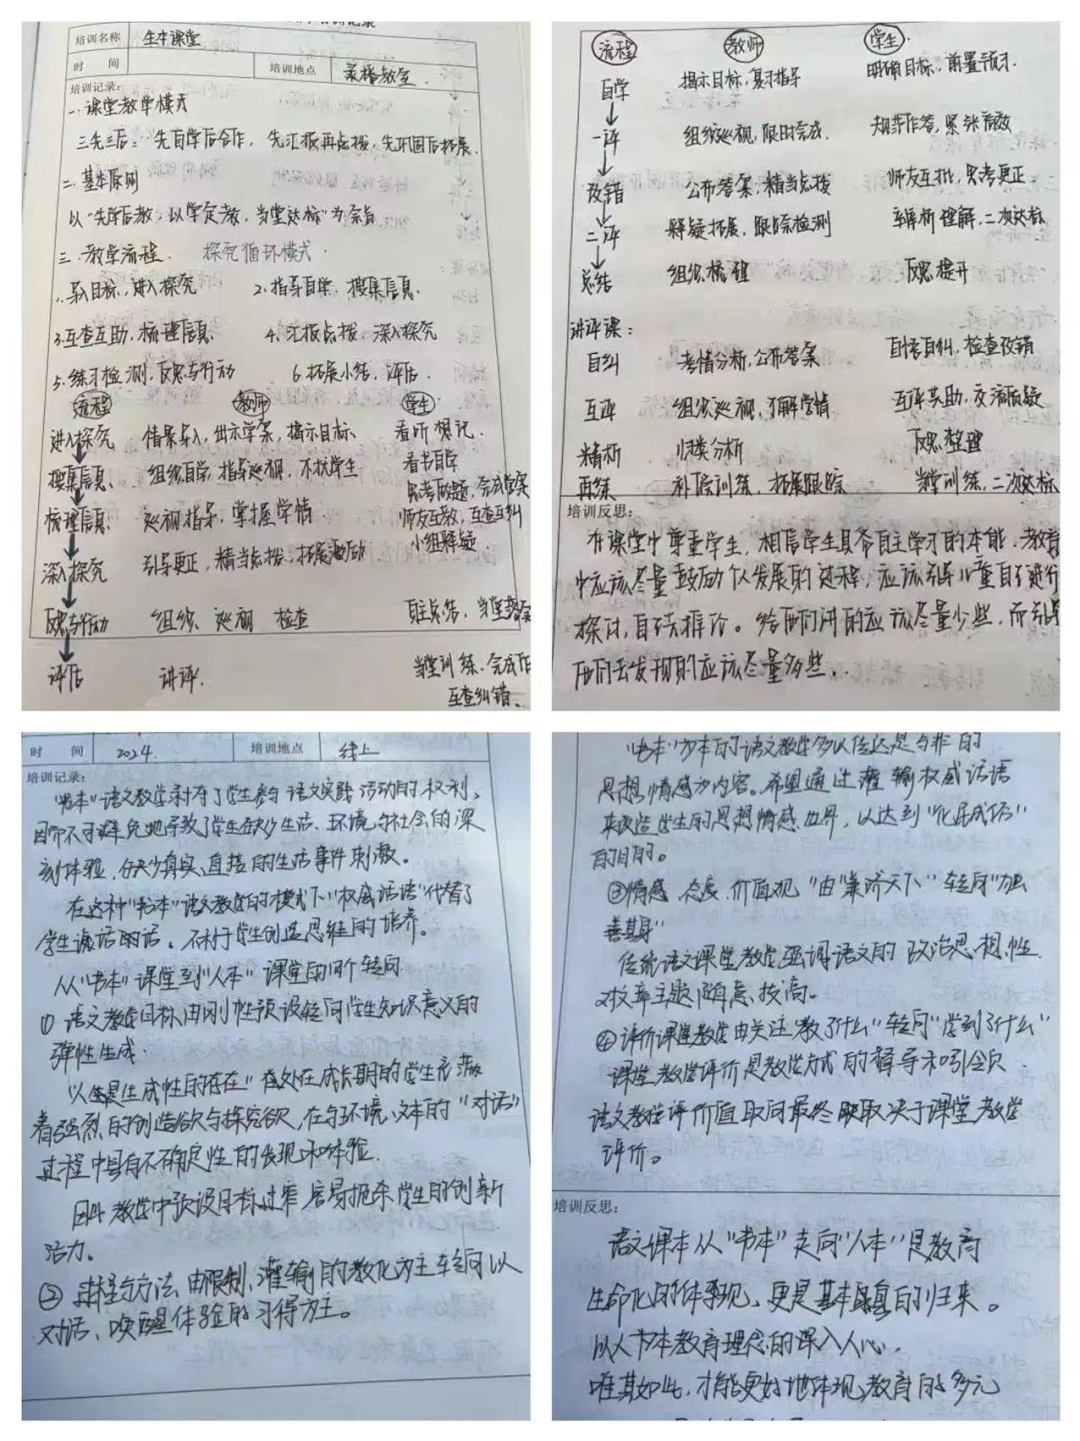 培训记录
培训名称 生本课堂
时 间 培训地点 录播教室.
培训记录:
一.课堂教学模式
三先三后: 先自学后合作, 先汇报再点拨, 先巩固后拓展.
二.基本原则
以"先学后教, 以学定教, 当堂达标"为宗旨
三.教学流程. 探究循环模式.
1.导入目标, 进入探究 2.指导自学, 搜集信息.
3.互查互助, 梳理信息. 4.汇报点拨, 深入探究
5.练习检测, 反思与行动 6.拓展小结, 评估.
流程 教师 学生
进入探究 情景导入, 出示学案, 揭示目标. 看听想记.
搜集信息. 组织自学, 指导巡视, 不扰学生 看书自学
思考做题, 完成学案
梳理信息. 巡视指导, 掌握学情 师友互教, 互查互纠
小组释疑
深入探究 引导更正, 精当点拨, 拓展激励
反思与行动 组织 巡视 检查 自主总结, 当堂
评估 讲评. 当堂训练. 完成后
互查纠错.
流程 教师 学生.
自学 揭示目标, 复习指导 明确目标, 前置预习.
一评 组织巡视, 限时完成. 规范作答, 紧张高效
改错 公布答案, 精当点拨 师友互批, 思考更正.
二评 释疑拓展, 跟踪检测 辨析理解, 二次达标
总结 组织梳理 反思提升
讲评课:
自纠 考情分析, 公布答案 自悟自纠, 检查改错
互评 组织巡视, 了解学情 互评共助, 交流质疑
精析 归类分析 反思整理
再练 补偿训练, 拓展跟踪 当堂训练, 二次达标
培训反思:
在课堂中尊重学生, 相信学生具备自主学习的本能. 教育
中应该尽量鼓励个人发展的过程, 应该引导儿童自己进行
探讨, 自己去推论。给他们讲的应该尽量少些, 而引导
他们去发现的应该尽量多些.
时 间 2024. 培训地点 线上
培训记录:
"书本"语文教学剥夺了学生参与语文实践活动的权利,
因而不可避免地导致了学生缺少生活、环境与社会的深
刻体验, 缺少真实、直接的生活事件刺激。
在这种"书本"语文教学的模式下"权威话语"代替了
学生说话的话。不利于学生创造思维的培养。
从"书本"课堂到"人本"课堂的四个转向
① 语文教学目标由刚性预设转向学生知识意义的
弹性生成.
"人是生成性的存在"处在成长期的学生充满
着强烈的创造欲与探究欲, 在与环境、文本的"对话"
过程中具有不确定性的发现和体验.
因此教学中预设目标过窄容易扼杀学生的创新
活力。
② 过程与方法 由限制、灌输的教化为主转向以
对话、唤醒体验的习得为主。
"书本"为本的语文教学多以传达是与非的
思想情感为内容。希望通过灌输权威话语
来改造学生的思想情感世界, 以达到"化民成俗"
的目的。
③情感 态度 价值观 "由"兼济天下"转向"独
善其身"
传统语文课堂教学强调语文的政治思想性.
对文章主题随意拔高。
④评价课堂教学由关注"教了什么"转向"学到了什么"
课堂教学评价是教学方式的督导和引领
语文教学评价值取向最终取决于课堂教学
评价。
培训反思:
语文课本从"书本"走向"人本"是教育
生命化的体现, 更是基本的归来。
以人为本教育理念的深入人心,
唯其如此, 才能更好地体现教育的多元